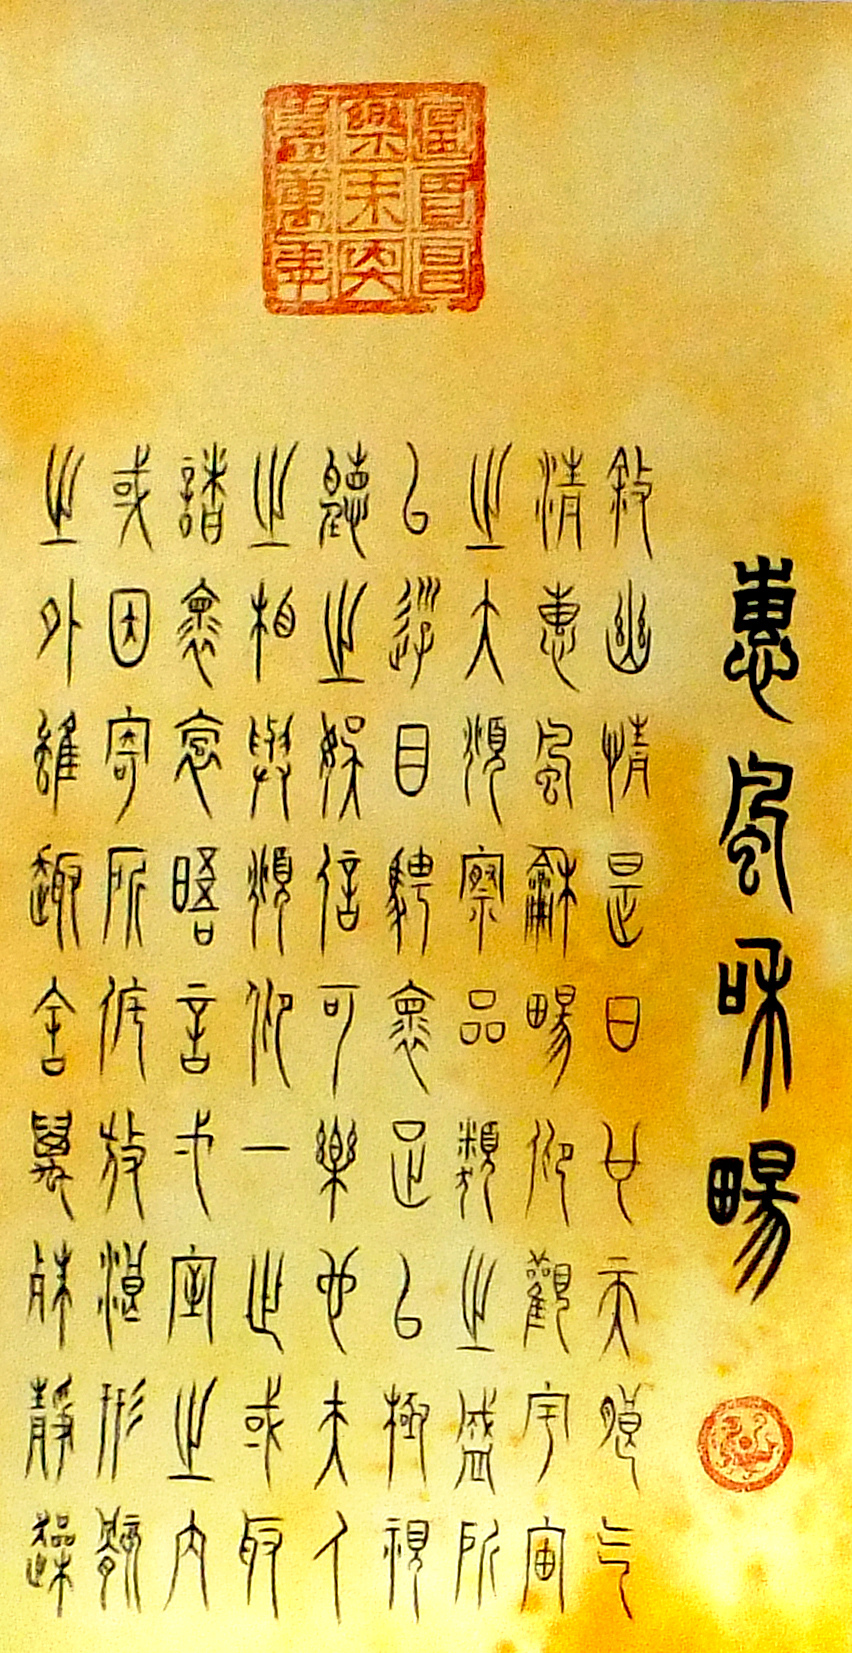 惠風和暢
敘幽情是日也天朗气
清惠風龢暢仰觀宇宙
之大頫察品類之盛所
以遊目騁懷足以極視
聽之娛信可樂也夫人
之相與頫仰一世或取
諸懷抱晤言弌室之內
或因寄所託放浪形骸
之外雖趣舍萬殊靜躁
富貴昌
樂未央
萬年